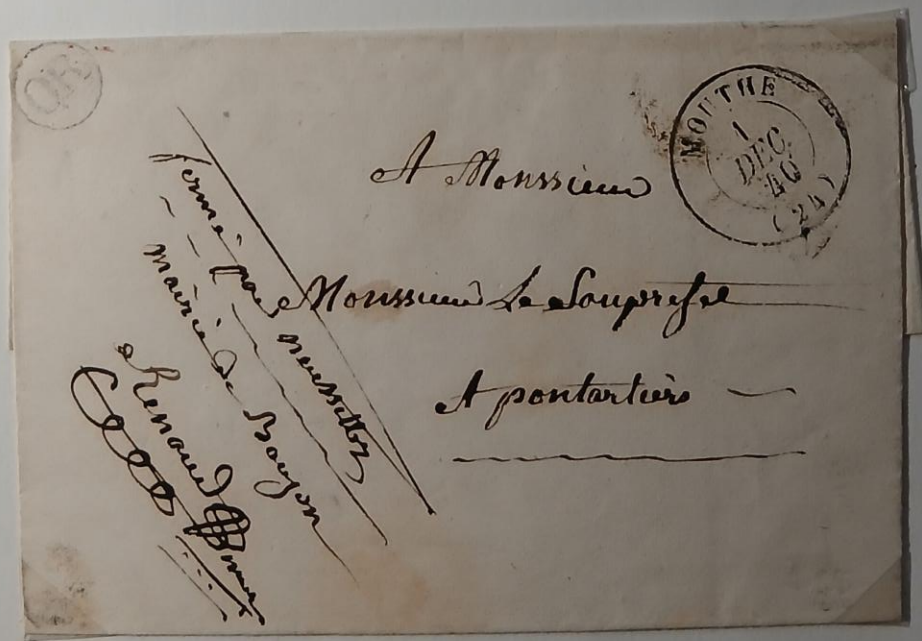 OR
MOUTHE
1
DEC
40
(24)
A Monssieur
Monssieur Le Souprefet
A pontarliers
fermé par nessesitez
mairie de
Renaud